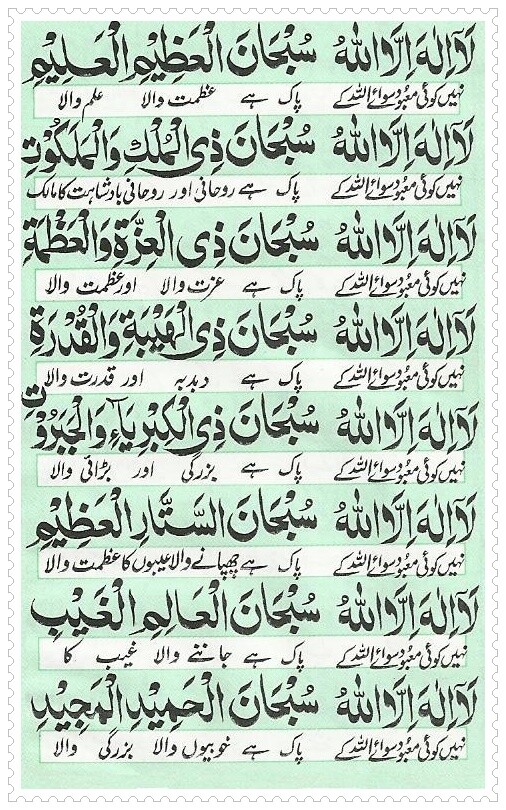 لَآ اِلٰهَ اِلَّا اللهُ سُبْحَانَ الْعَظِيْمِ الْعَلِيْمِ
نہیں کوئی معبود سوائے اللہ کے پاک ہے عظمت والا علم والا
لَآ اِلٰهَ اِلَّا اللهُ سُبْحَانَ ذِی الْمُلْكِ وَالْمَلَكُوْتِ
نہیں کوئی معبود سوائے اللہ کے پاک ہے روحانی اور روحانی بادشاہت کا مالک
لَآ اِلٰهَ اِلَّا اللهُ سُبْحَانَ ذِی الْعِزَّةِ وَالْعَظْمَةِ
نہیں کوئی معبود سوائے اللہ کے پاک ہے عزت والا اور عظمت والا
لَآ اِلٰهَ اِلَّا اللهُ سُبْحَانَ ذِی الْهَيْبَةِ وَالْقُدْرَةِ
نہیں کوئی معبود سوائے اللہ کے پاک ہے دبدبہ اور قدرت والا
لَآ اِلٰهَ اِلَّا اللهُ سُبْحَانَ ذِی الْكِبْرِيَآءِ وَالْجَبَرُوْتِ
نہیں کوئی معبود سوائے اللہ کے پاک ہے بزرگی اور بڑائی والا
لَآ اِلٰهَ اِلَّا اللهُ سُبْحَانَ السَّتَّارِ الْعَظِيْمِ
نہیں کوئی معبود سوائے اللہ کے پاک ہے چھپانے والا عیبوں کا عظمت والا
لَآ اِلٰهَ اِلَّا اللهُ سُبْحَانَ الْعَالِمِ الْغَيْبِ
نہیں کوئی معبود سوائے اللہ کے پاک ہے جاننے والا غیب کا
لَآ اِلٰهَ اِلَّا اللهُ سُبْحَانَ الْحَمِيْدِ الْمَجِيْدِ
نہیں کوئی معبود سوائے اللہ کے پاک ہے خوبیوں والا بزرگی والا